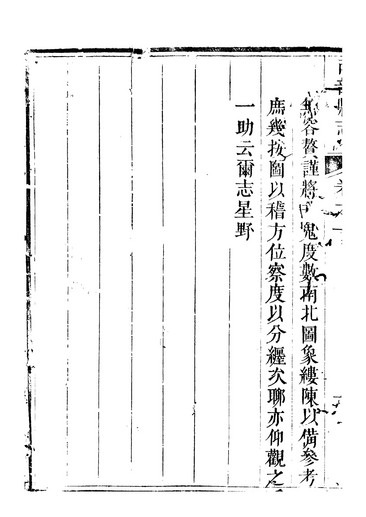 無容贅謹將鬼度數南北圖象縷陳以備參考
庶幾按圖以稽方位察度以分纏次聊亦仰觀之
一助云爾志星野